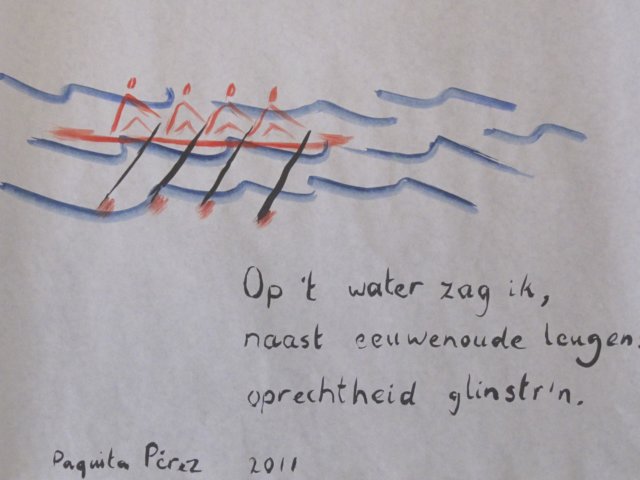 Op 't water zag ik,
naast eeuwenoude leugen.
oprechtheid glinstr'n.
Paquita Pérez 2011